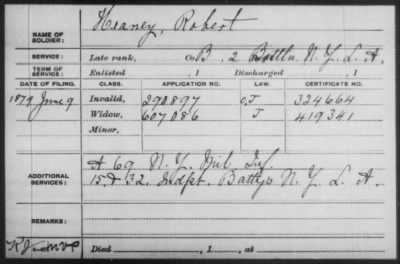 NAME OF SOLDIER: Heaney, Robert
SERVICE: Late rank, Co. B, 2 Battln N. Y. L. A.
TERM OF SERVICE: Enlisted , 1 Discharged , 1
DATE OF FILING. CLASS. APPLICATION NO. LAW. CERTIFICATE NO.
1879 June 9 Invalid, 290897 324664
Widow, 607086 J 419341
Minor,
& 69 N. Y. Mil Inf.
ADDITIONAL SERVICES: 15 & 32 Indpt. Batty's N. Y. L. A.
REMARKS:
Died , 1 , at